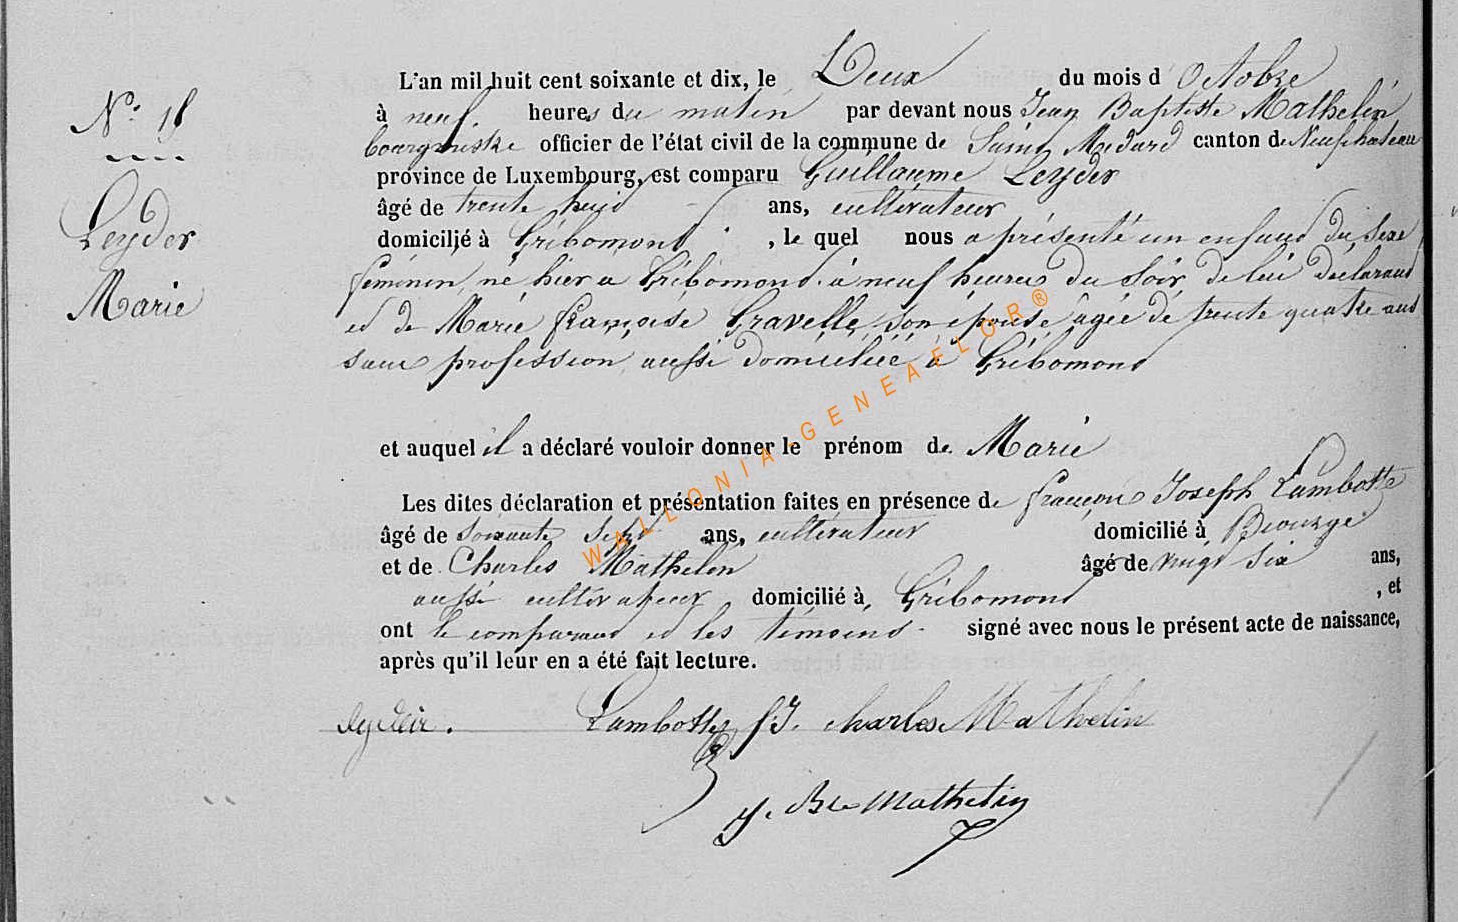 L'an mil huit cent soixante et dix, le Deux du mois d'Octobre
N° 18
à neuf heures du matin par devant nous Jean Baptiste Mathelin
bourgmestre officier de l'état civil de la commune de Saint Médard canton de Neufchateau
province de Luxembourg, est comparu Guillaume Leyder
âgé de trente huit ans, cultivateur
Leyder
domicilié à Gribomont, le quel nous a présenté un enfant du sexe
féminin, né hier à Gribomont à neuf heures du soir de lui déclarant
Marie
et de Marie françoise Gravelle, son épouse âgée de trente quatre ans
sans profession, aussi domiciliée à Gribomont
WALLONIA-GENEAFLOR®
et auquel il a déclaré vouloir donner le prénom de Marie
Les dites déclaration et présentation faites en présence de françois Joseph Lambotte
âgé de soixante sept ans, cultivateur domicilié à Biourge
et de Charles Mathelin âgé de vingt six ans,
aussi cultivateur domicilié à Gribomont, et
ont le comparant et les témoins signé avec nous le présent acte de naissance,
après qu'il leur en a été fait lecture.
Lambotte fJ. charles Mathelin
J. Bte Mathelin